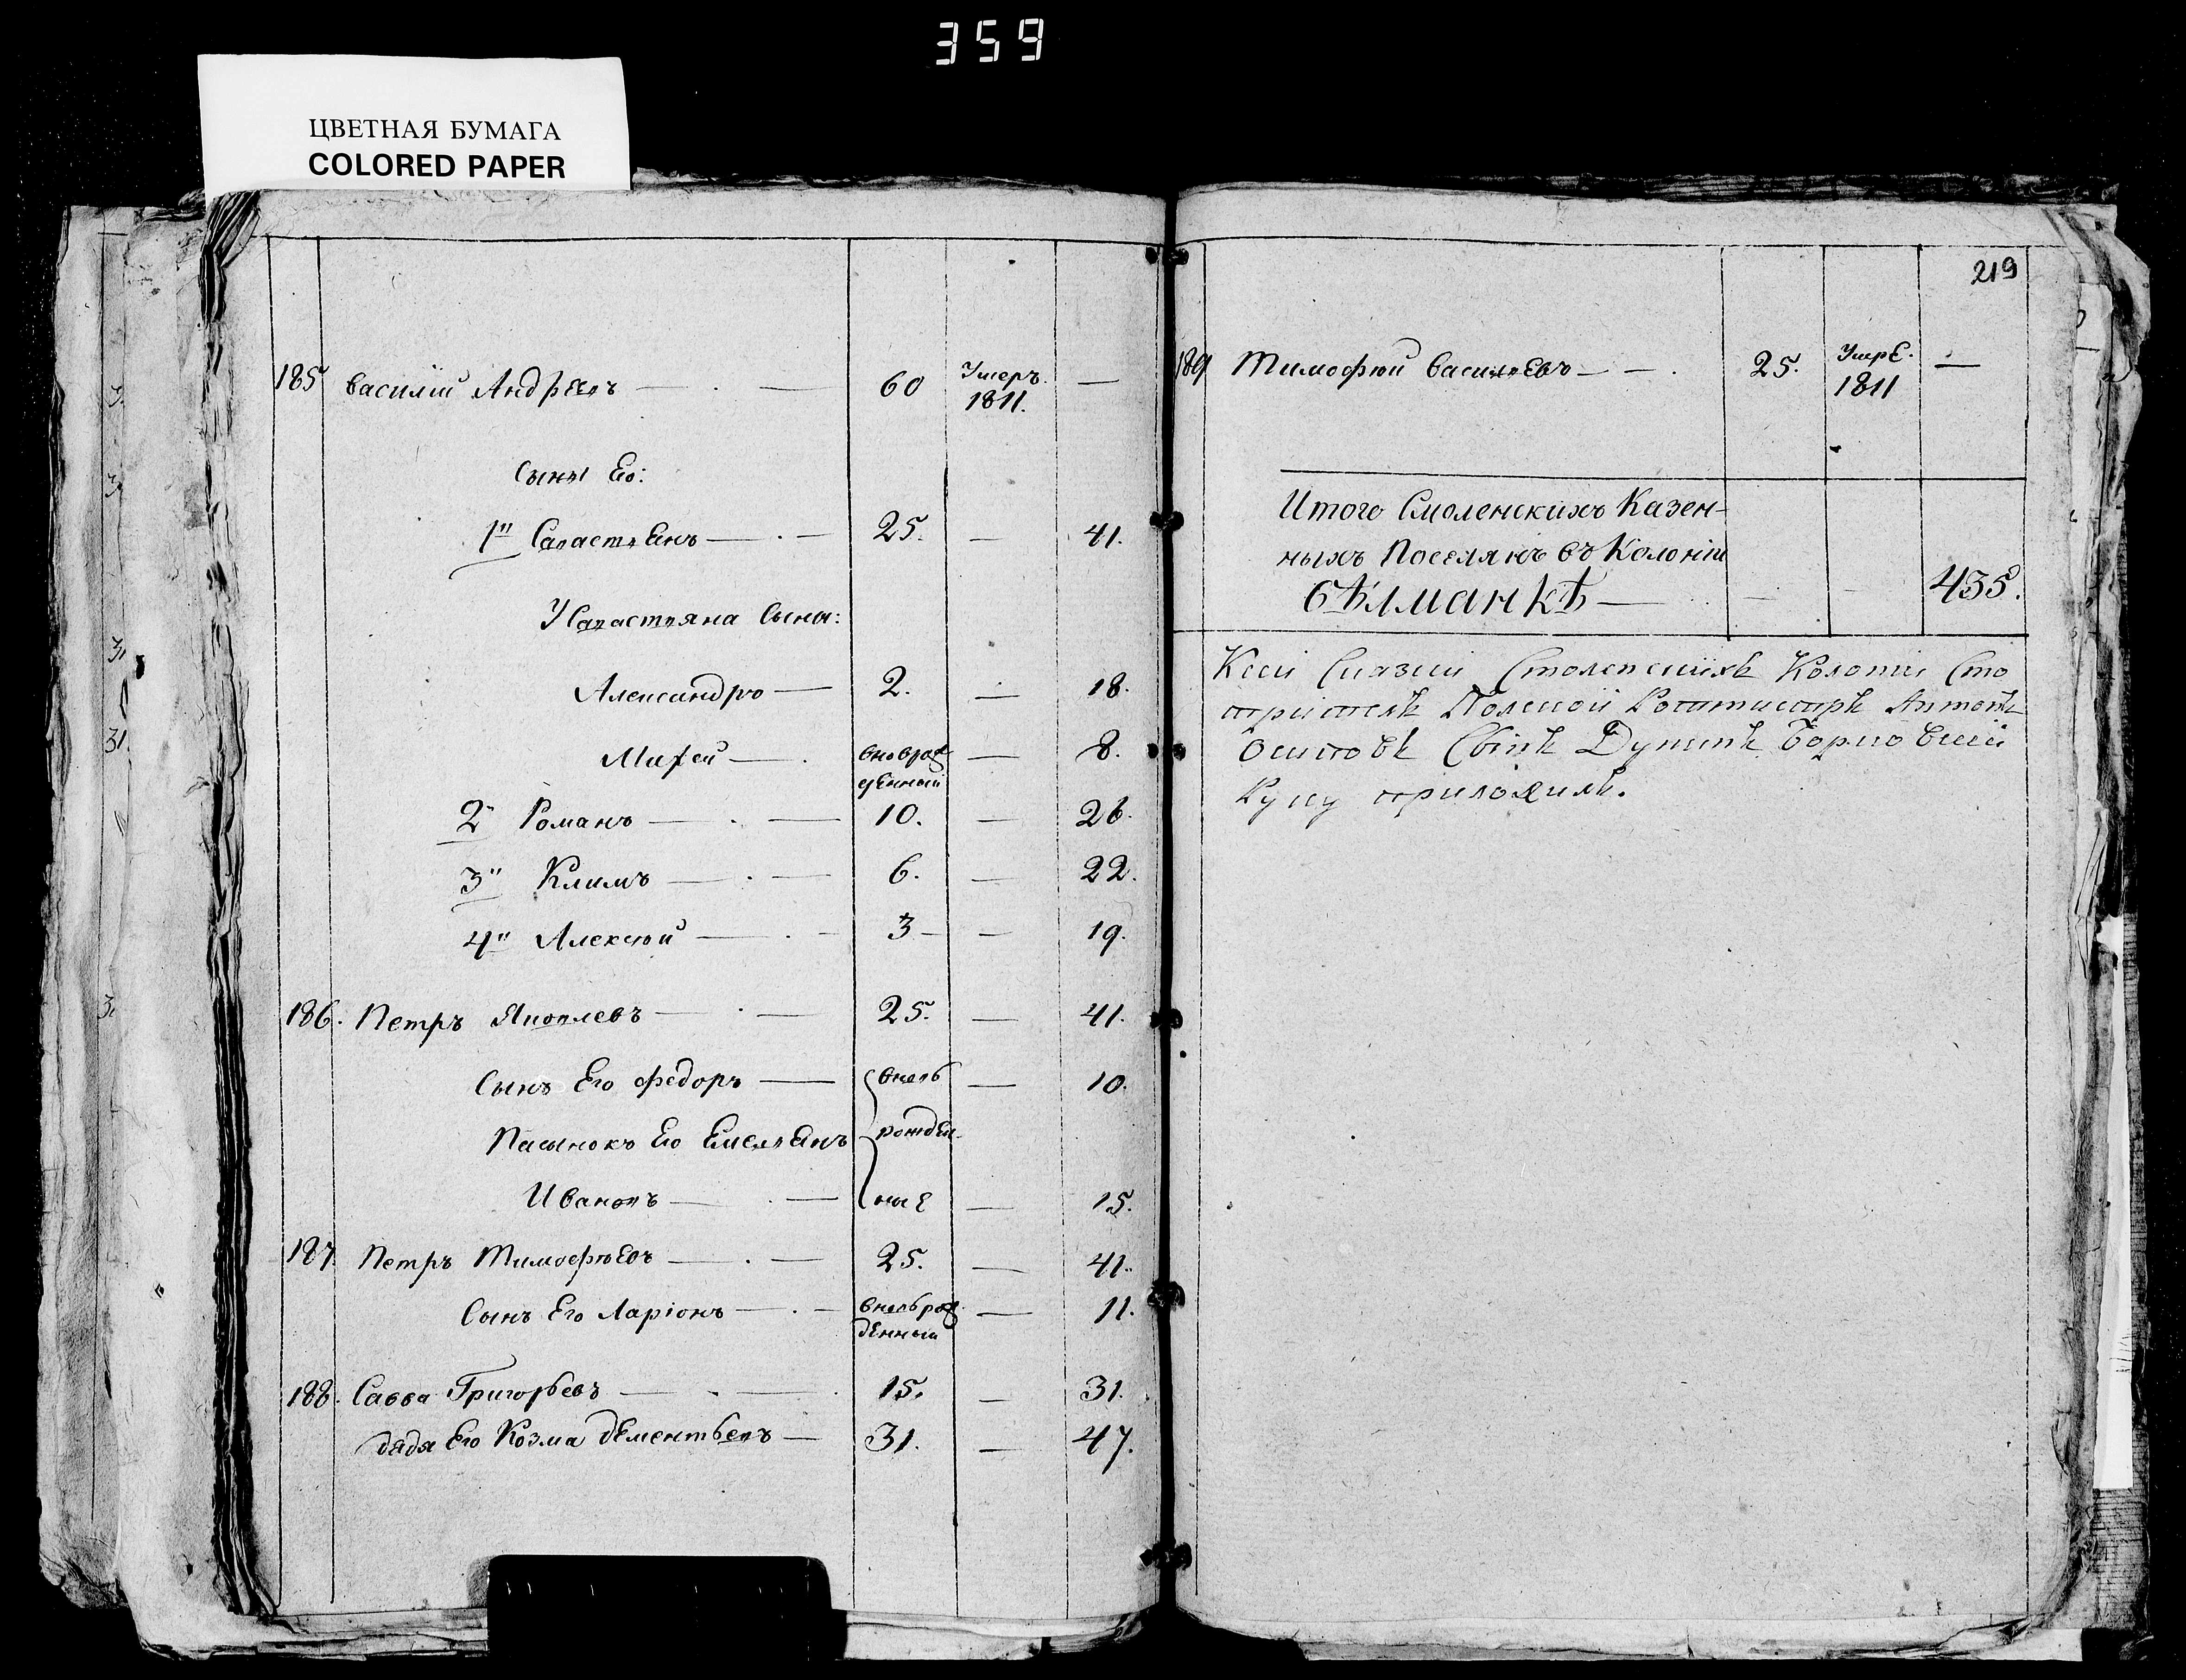 359
ЦВЕТНАЯ БУМАГА
COLORED PAPER
185 Василій Андреевъ 60 Умеръ 1811.
Сыны Ево:
1й Савастьянъ 25. 41.
У Савастьяна Сына:
Александръ 2. 18.
Михей вноврожденный 8.
2й Романъ 10. 26.
3й Климъ 6. 22.
4й Алексѣй 3 19.
186. Петръ Яковлевъ 25. 41.
Сынъ Его Федоръ 10.
Пасынокъ Ево Емельянъ
Ивановъ вновьрожденные 15.
187. Петръ Тимофѣевъ 25. 41.
Сынъ Его Ларіонъ вновьрожденный 11.
188. Савва Григорьевъ 15. 31.
дядя Ево Козма дементьевъ 31. 47.
219
189 Тимофѣй Васильевъ 25. Умре. 1811
Итого Смоленскихъ Казен-
ныхъ Поселянъ въ Колоніи
СѢЛМАНКѢ 435.
Колоніи
Антонъ
Осиповъ Сынъ
Руку приложилъ.